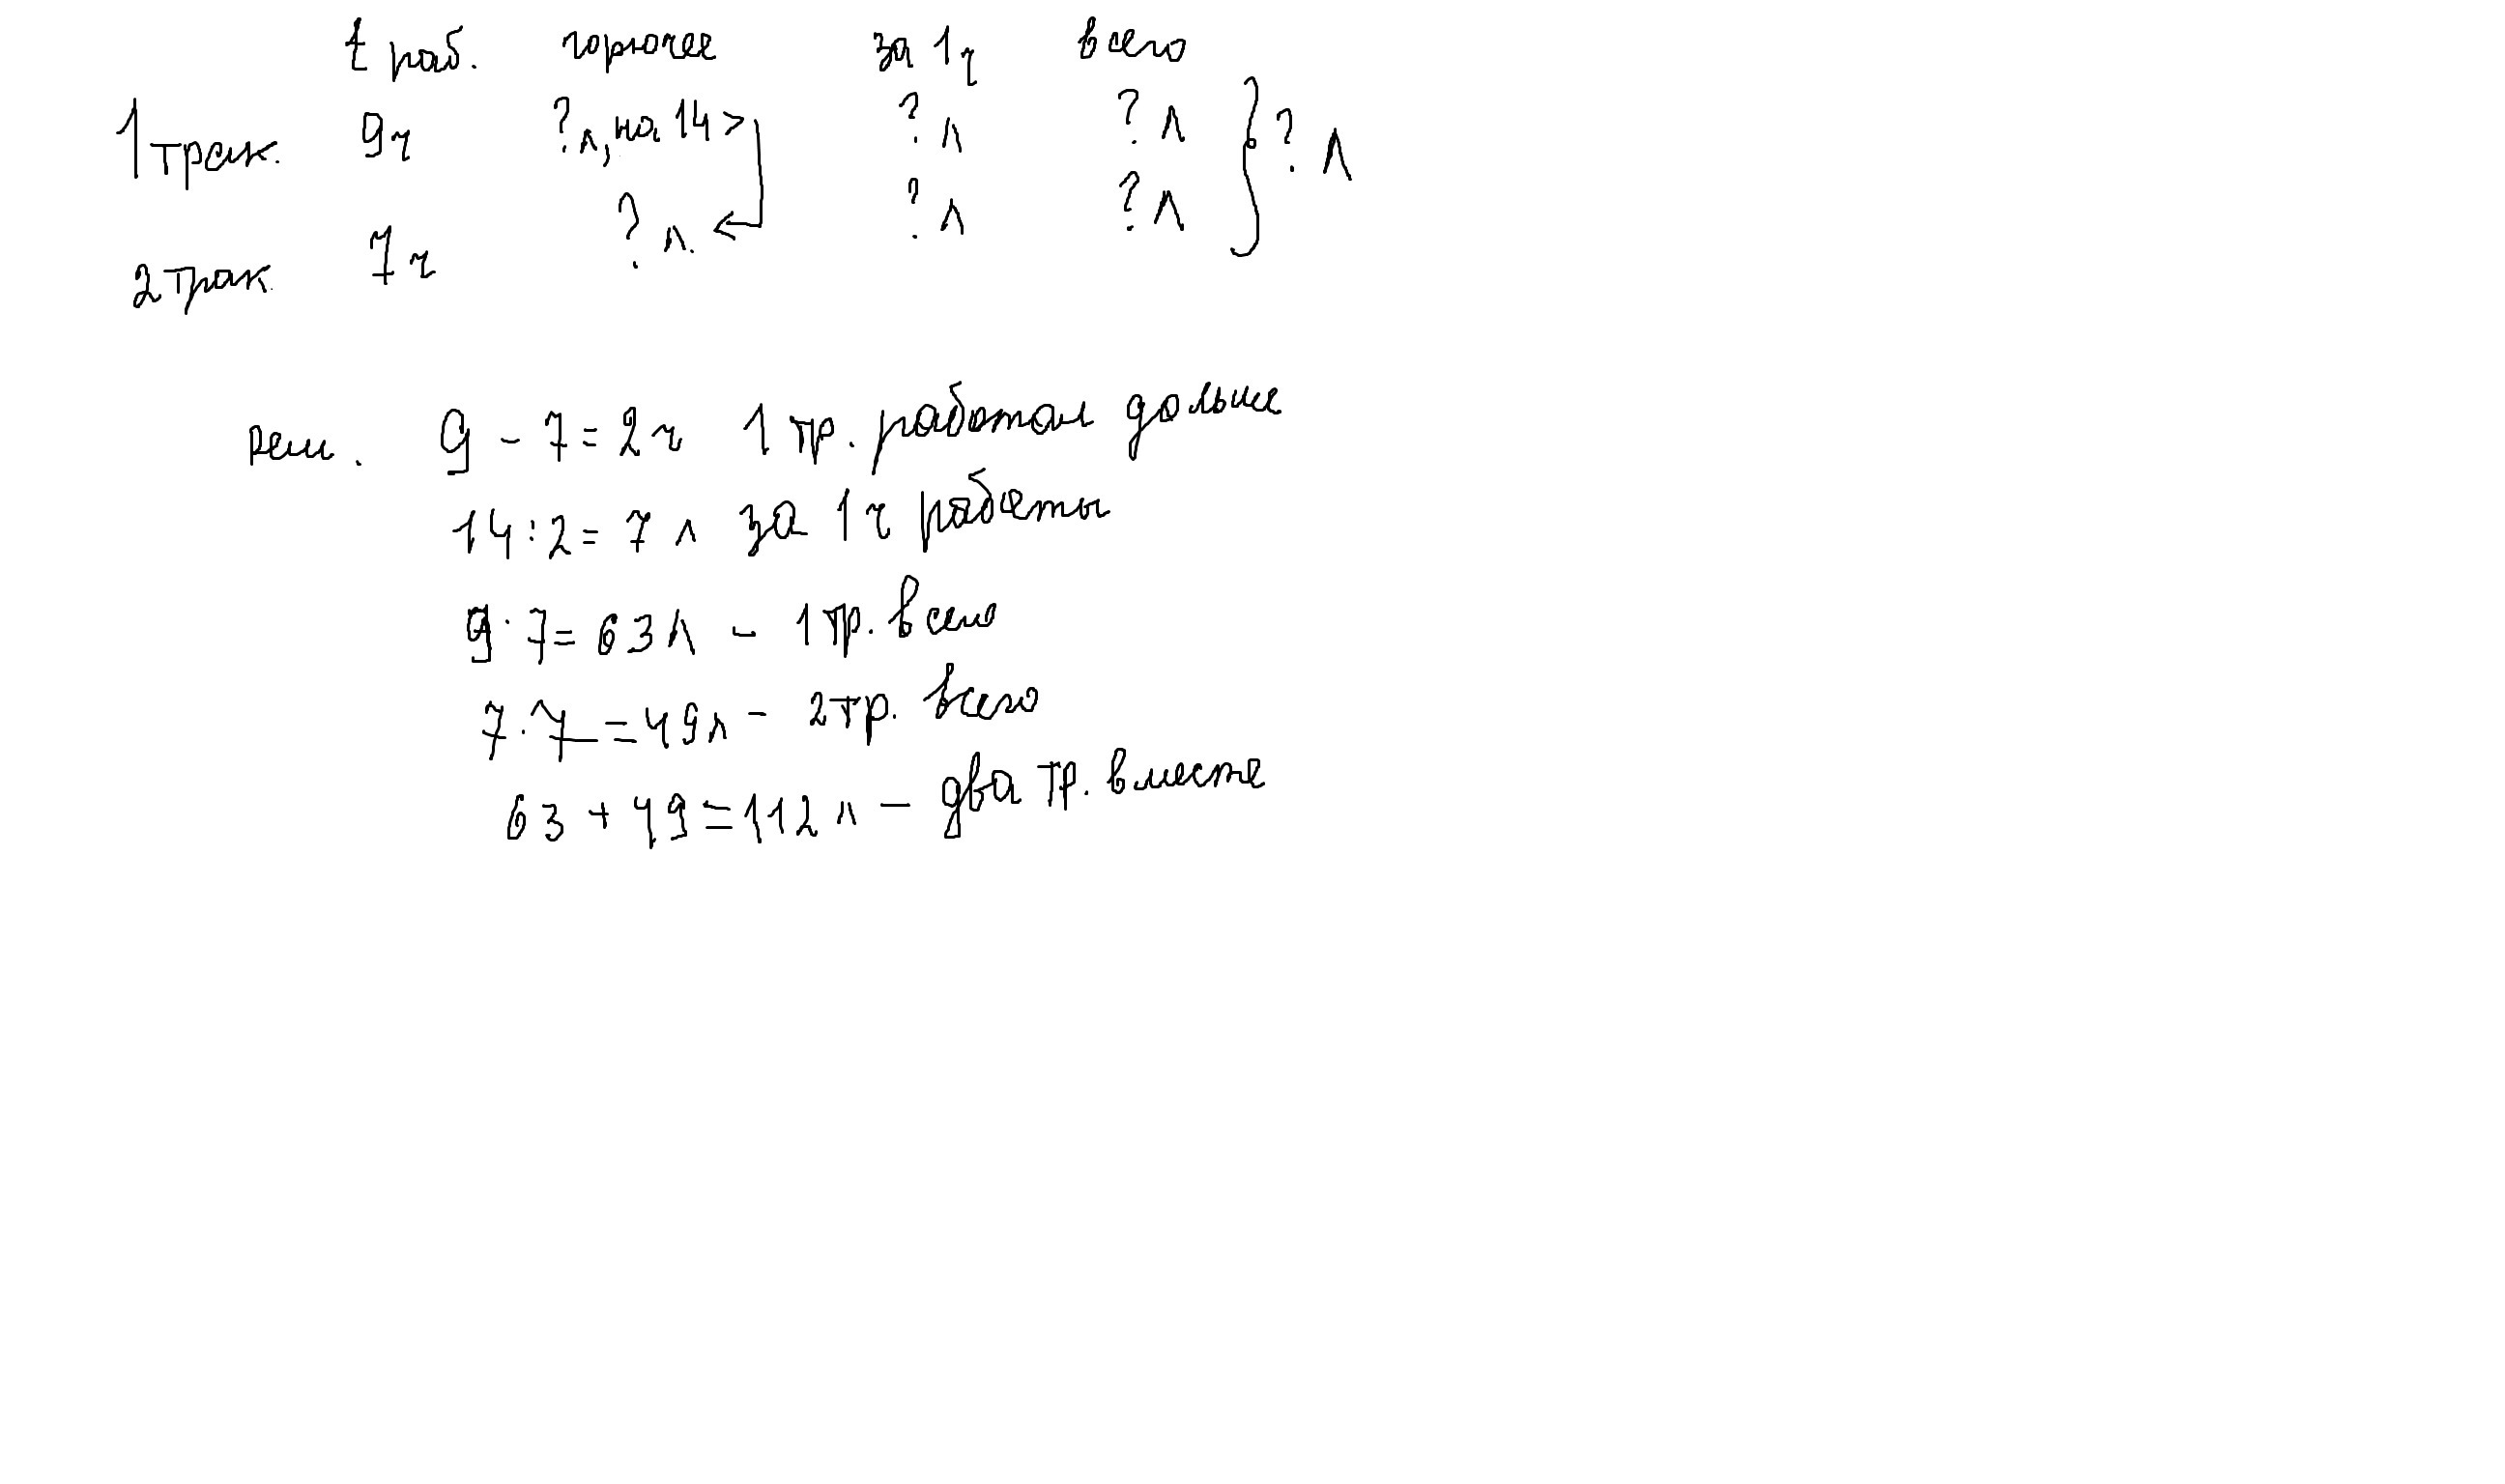 t раб. горючее за 1ч всего
1 трак. 9ч ?л, на 14> ?л ?л } ?л
2 трак. 7ч ?л. ?л ?л
Реш. 9 - 7 = 2ч 1 тр. работал дольше
14 : 2 = 7 л за 1ч работы
9 · 7 = 63л - 1 тр. всего
7 · 7 = 49л - 2 тр. всего
63 + 49 = 112л - два тр. вместе